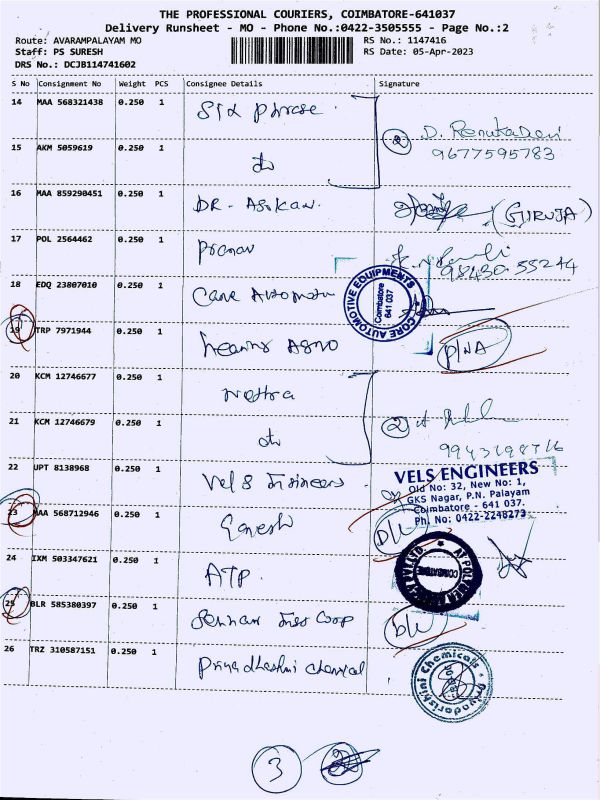 THE PROFESSIONAL COURIERS, COIMBATORE-641037
Delivery Runsheet - MO - Phone No.:0422-3505555 - Page No.:2
Route: AVARAMPALAYAM MO RS No.: 1147416
Staff: PS SURESH RS Date: 05-Apr-2023
DRS No.: DCJB114741602
S No Consignment No Weight PCS Consignee Details Signature
14 MAA 568321438 0.250 1 Six phrase
2 D. Renuka Devi
15 AKM 5059619 0.250 1 do 9677595783
16 MAA 859290451 0.250 1 DR. ASOKAN. (GIRIJA)
17 POL 2564462 0.250 1 Pranav
98430 55244
18 EDQ 23807010 0.250 1 Core Automotive
CORE AUTOMOTIVE EQUIPMENTS
Coimbatore
641 037
19 TRP 7971944 0.250 1 P/NA
20 KCM 12746677 0.250 1 Nethra
2
21 KCM 12746679 0.250 1 do
22 UPT 8138968 0.250 1 Vels Engineers
VELS ENGINEERS
Old No: 32, New No: 1,
GKS Nagar, P.N. Palayam
Coimbatore - 641 037.
Ph. No: 0422-2248273
23 MAA 568712946 0.250 1 Ganesh D/L
24 IXM 503347621 0.250 1 ATP.
COIMBATORE
25 BLR 585380397 0.250 1 D/L
26 TRZ 310587151 0.250 1 Priyadharshni chemical
Priyadarishini Chemicals
3 2